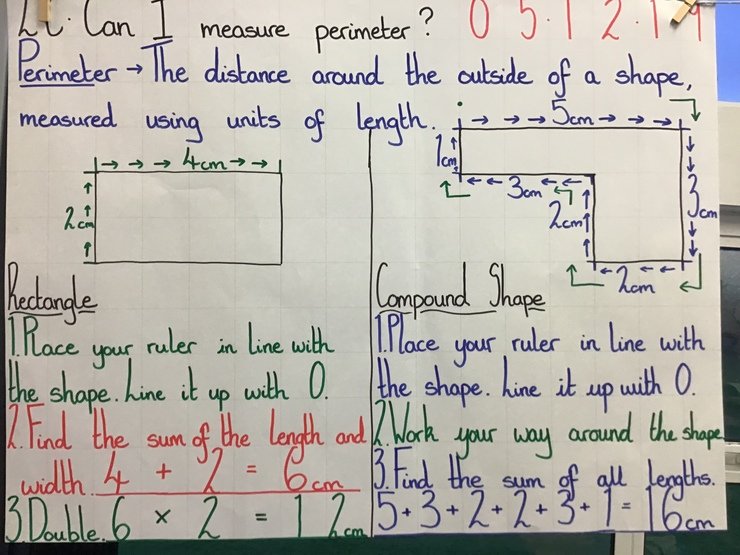 LC. Can I measure perimeter?
05.12.19
Perimeter → The distance around the outside of a shape,
measured using units of length.
4cm
2cm
5cm
1cm
3cm
2cm
3cm
2cm
Rectangle
1. Place your ruler in line with
the shape. Line it up with 0.
2. Find the sum of the length and
width. 4 + 2 = 6cm
3 Double. 6 × 2 = 12cm
Compound Shape
1. Place your ruler in line with
the shape. Line it up with 0.
2. Work your way around the shape
3. Find the sum of all lengths.
5+3+2+2+3+1 = 16cm